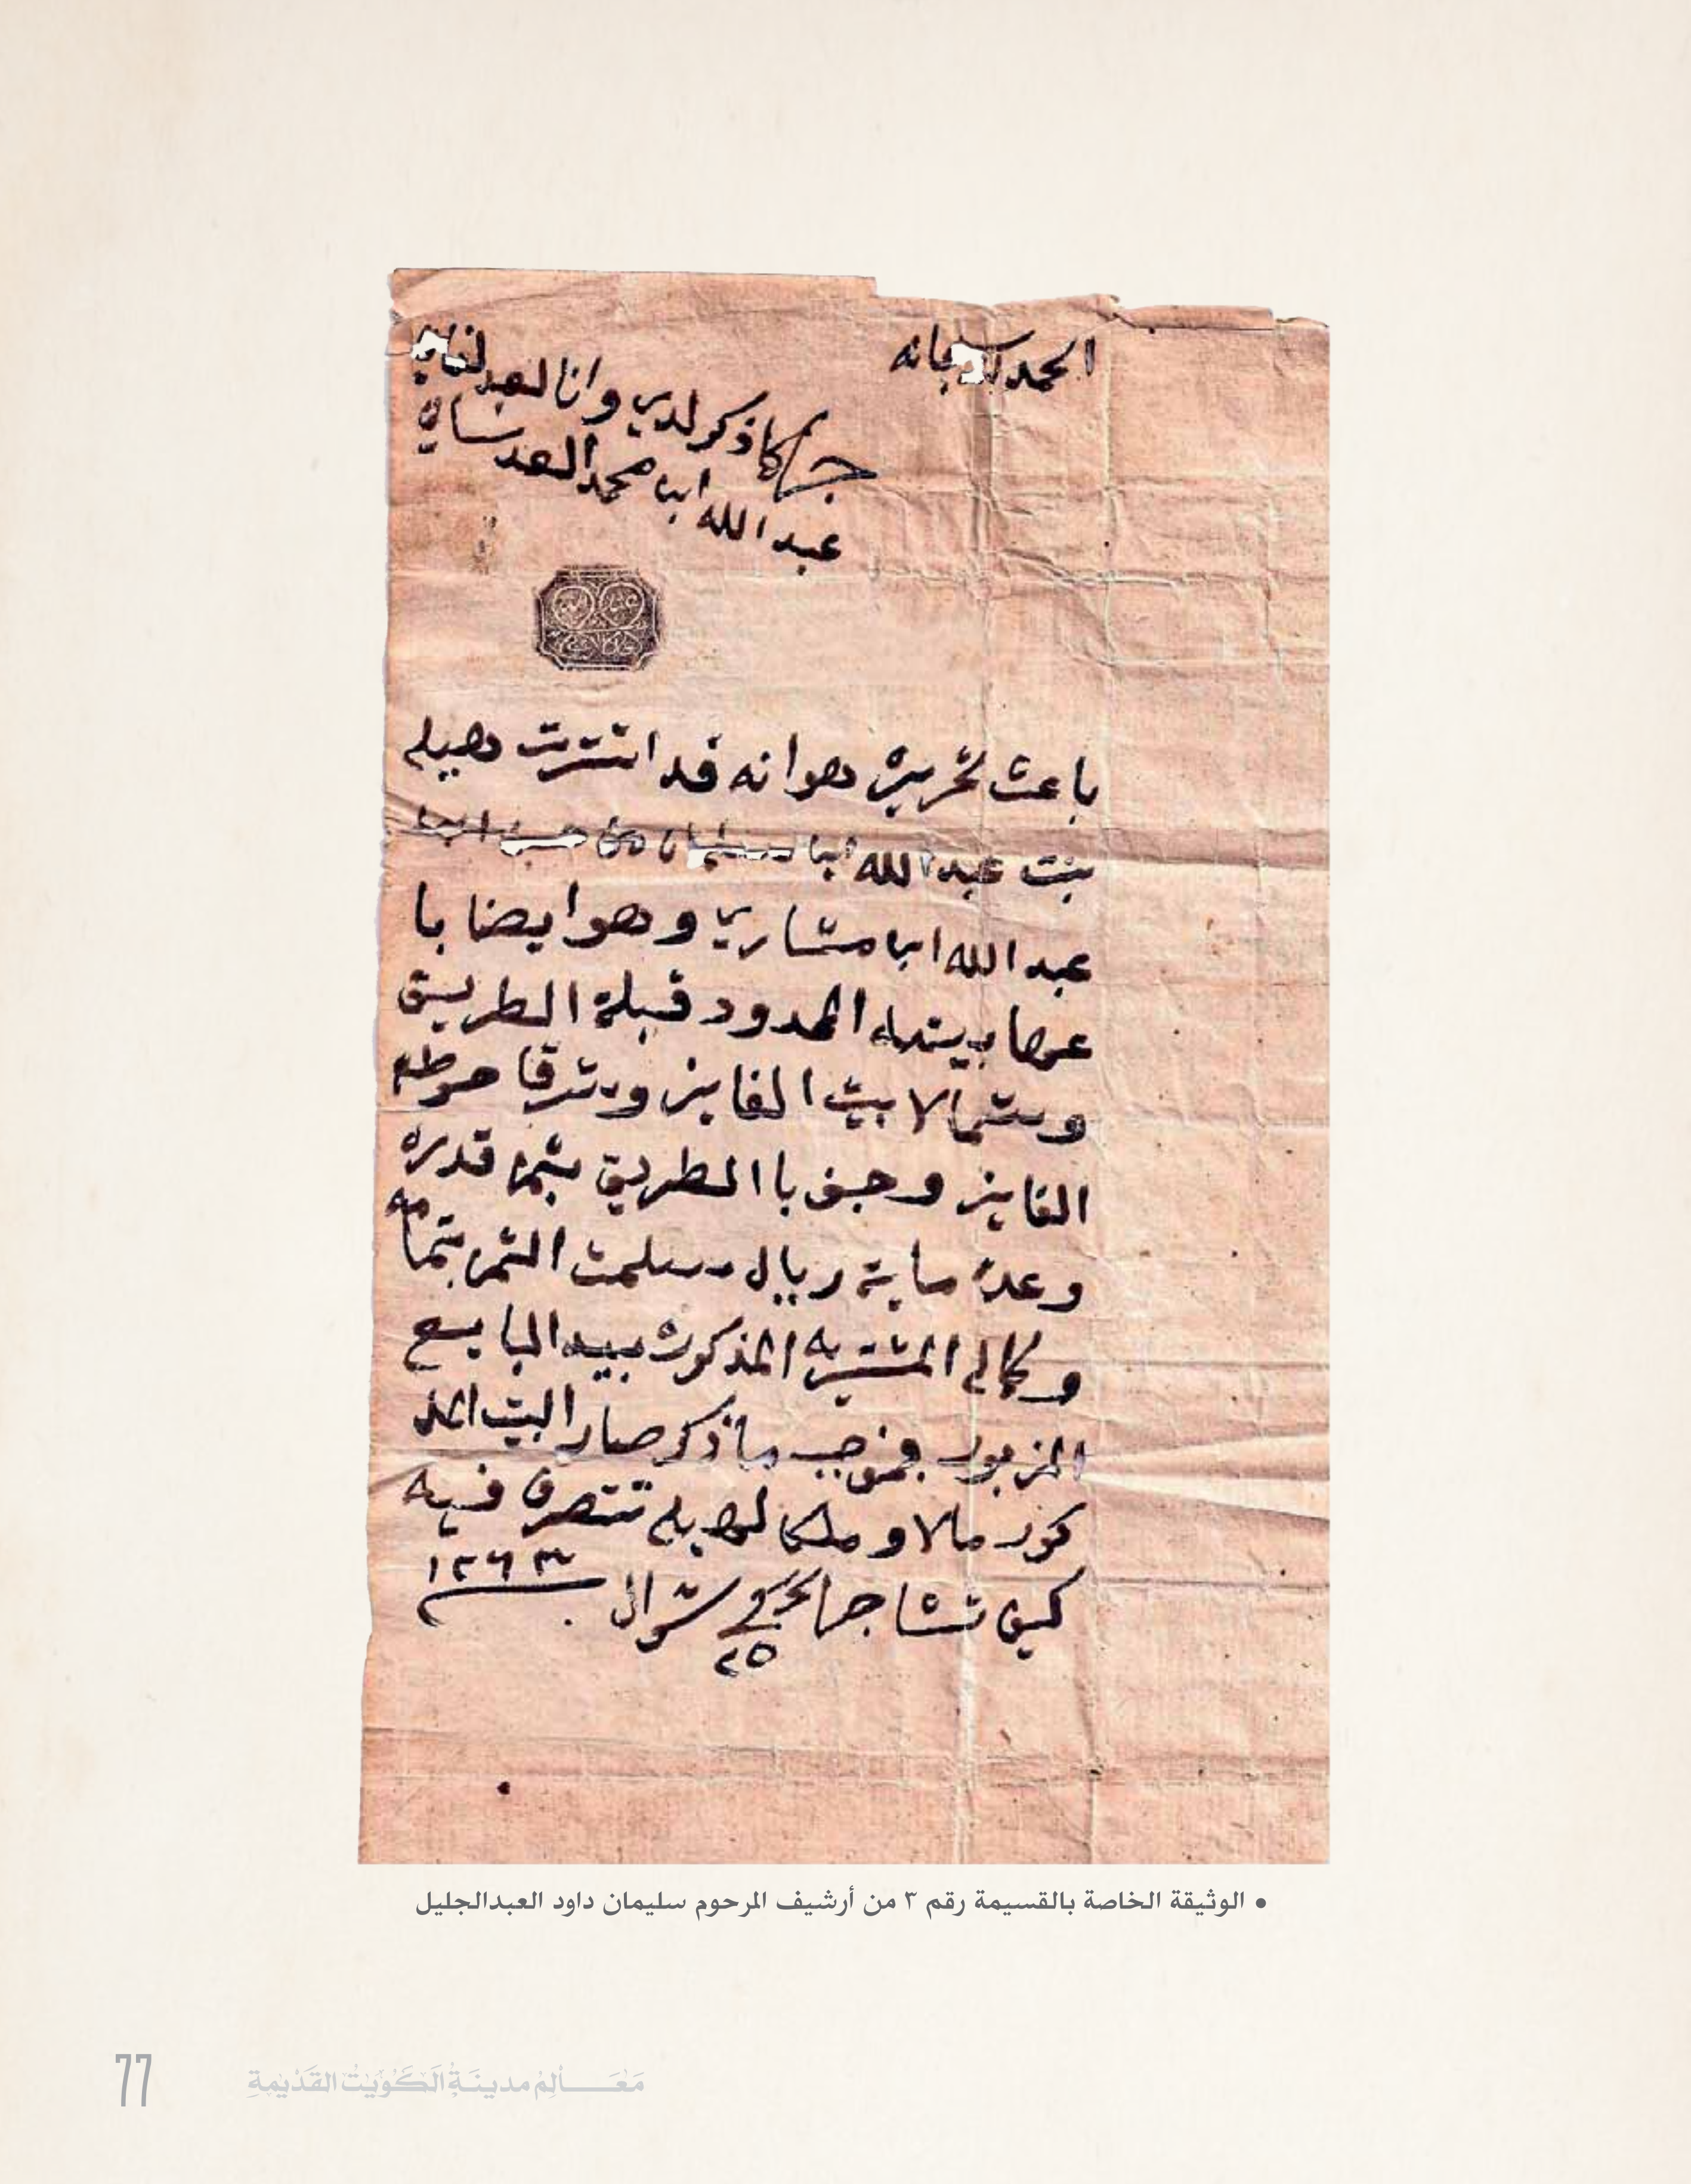 الحمد لله سبحانه
جرى كما ذكر لدي وانا العبد الفاني
عبد الله ابن محمد العدساني
باعث تحريره هو انه قد اشترت هيله
بنت عبد الله ابن سليمان من حسين ابن
عبد الله ابن مشاري وهو ايضا با
عها بيته المحدود قبلة الطريق
وشمالا بيت الفايز وشرقا حوطة
الفايز وجنوبا الطريق بثمن قدره
وعده ماية ريال وسلمت الثمن بتمامه
وكماله المشتريه المذكوره بيد البايع
المزبور فبموجب ما ذكر صار البيت المذ
كور مالا وملكا لهيله تتصرف فيه
كيف تشا جرا تحر في ٢٥ شوال ١٢٦٣
• الوثيقة الخاصة بالقسيمة رقم ٣ من أرشيف المرحوم سليمان داود العبدالجليل
مَعَالِمُ مدينَةِ الكُوَيْت القَدْيمِةِ
77